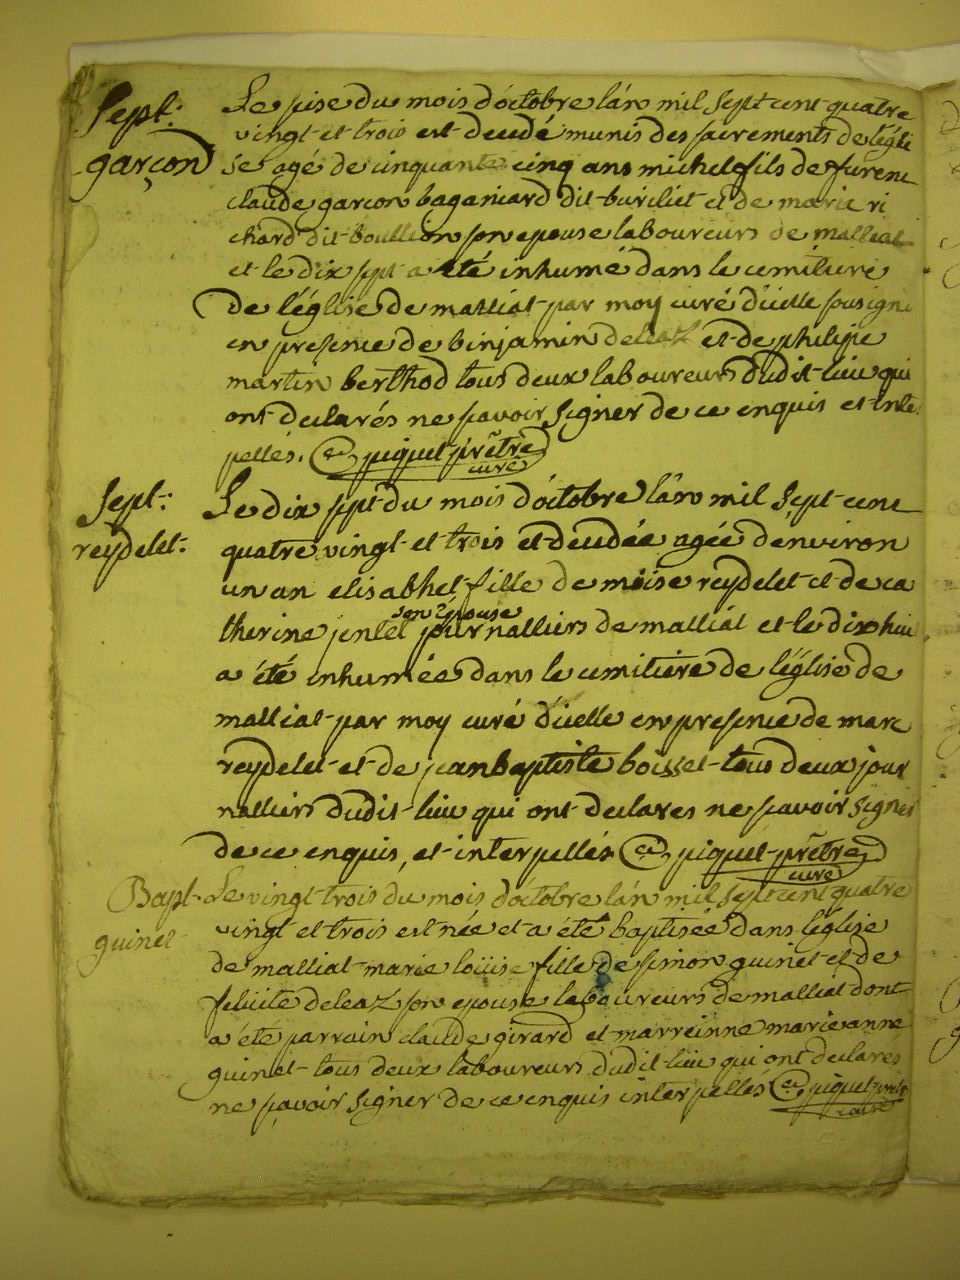 Sept:
garçon
Le sise du mois d'octobre l'an mil sept cent quatre
vingt et trois est decedé munis des sacrements de l'egli
se agé de cinquante cinq ans michel fils de
claude garcon baganiard dit buriliet et de marie ri
chard dit boullion son epouse laboureurs de malliat
et le dix sept a été inhumé dans le cemitiere
de l'église de malliat par moy curé d'icelle sousigné
en presence de binjamin deleaz et de philipe
martin berthod tous deux laboureurs dudit lieu qui
ont declarés ne scavoir signer de ce enquis et inte
pellés. piquet prêtre
curé
Sept:
reydelet.
Le dix sept du mois d'octobre l'an mil sept cent
quatre vingt et trois et decédée agée d'environ
un an elisabhet fille de moise reydelet et de ca
son épouse
therine jentet journalliers de malliat et le dix huit
a été inhumée dans le cemitiere de l'église de
malliat par moy curé d'icelle en presence de marc
reydelet et de jean baptiste boisset tous deux jour
nalliers dudit lieu qui ont declares ne scavoir signer
de ce enquis, et interpellés piquet prêtre
curé
Bapt.
guinet
Le vingt trois du mois d'octobre l'an mil sept cent quatre
vingt et trois est née et a été baptisée dans l'église
de malliat marie loüise fille de simon guinet et de
felicite deleaz son epouse laboureurs de malliat dont
a été parrain claude girard et marreinne marie anne
guinet tous deux laboureurs dudit lieu qui ont declarés
ne scavoir signer de ce enquis interpellés piquet prêtre
curé